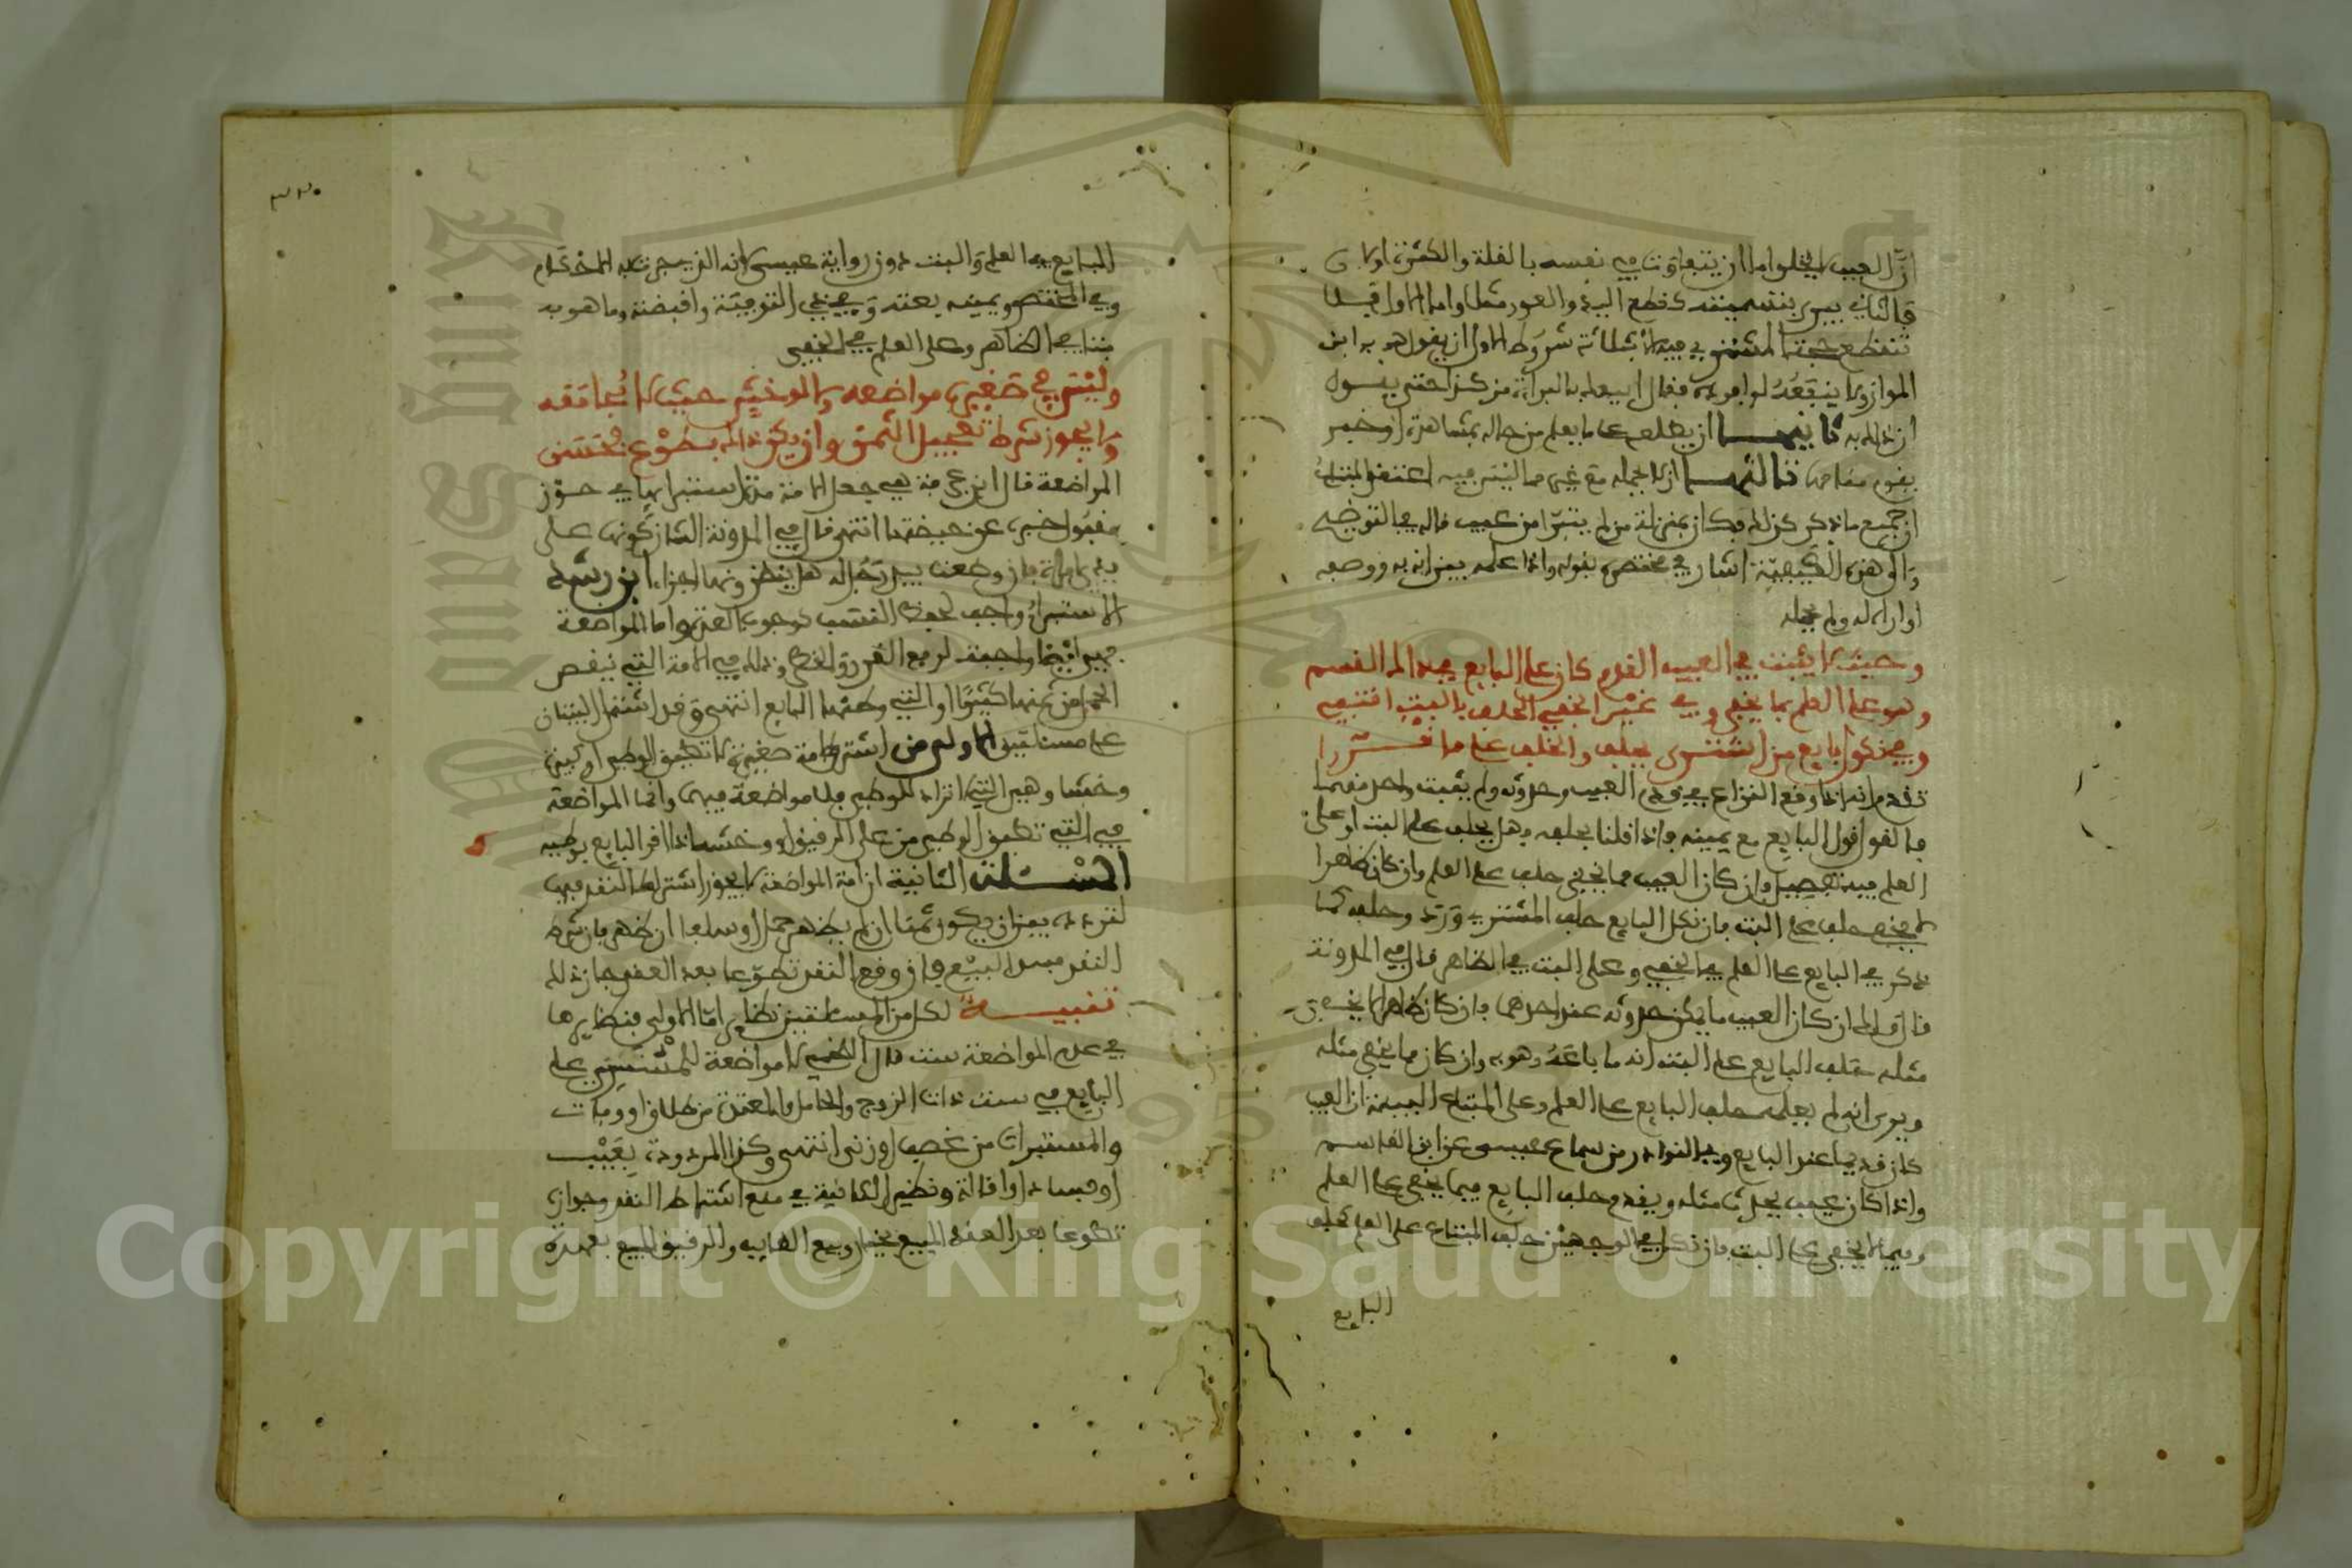 ان العيب لا يخلوا اما ان يتفاوت في نفسه بالقلة والكثرة اولا
فالثاني يبرى بتسميته كقطع اليد والعور مثلا واما الاول فلا
تنقطع حجة المشتري فيه الا بثلاثة شروط الاول ان يقول هو به ابن
المواز ولا ينفعه لو افرده فقال ابيعك بالبراءة من كذا حتى يقول
ان ذلك به ثانيهما ان يطلعه على ما يعلم من حاله بمشاهدة او خبر
يقوم مقامها ثالثهما ان لا يجمله مع غيره مما ليس فيه
ان جميع ما ذكر كذلك فكان بمنزلة من لم يتبرا من عيب قاله في التوضيح
والى هذه الكيفية اشار في مختصره بقوله واذا علمه بين انه به ووصفه
او اراه له ولم يجمله
وحيث لا يثبت في العيب القدم كان على البايع في ذلك القسم
وهو على العلم بما يخفى وفي غير الخفي الحلف بالبت اقتفي
وفي نكول بايع من اشترى يحلف والحلف على ما قررا
تقدم انه اذا وقع النزاع في قدم العيب وحدوثه ولم يثبت واحد منهما
فالقول قول البايع مع يمينه واذا قلنا يحلف فهل يحلف على البت او على
العلم فيه تفصيل فان كان العيب مما يخفى حلف على العلم وان كان ظاهرا
لا يخفى حلف على البت فان نكل البايع حلف المشتري ورد وحلف كما
ذكر في البايع على العلم في الخفي وعلى البت في الظاهر قال في المدونة
قال مالك ان كان العيب ما يمكن حدوثه عند احدهما فان كان ظاهرا لا يخفى
مثله حلف البايع على البت انه ما باعه وهو به وان كان مما يخفى مثله
ويرى انه لم يعلمه حلف البايع على العلم وعلى المبتاع البينة ان العيب
كان قديما عند البايع وفي النوادر من سماع عيسى عن ابن القاسم
واذا كان عيب يحدث مثله ويقدم حلف البايع فيما يخفى على العلم
وفيما لا يخفى على البت فان نكل في الوجهين حلف المبتاع على العلم كحلف
البايع
٣٢٠
البايع في العلم والبت دون رواية عيسى انه الذي جرت به الاحكام
وفي المختصر ويمينه بعته وفي ذي التوفية واقبضته وما هو به
بتا في الظاهر وعلى العلم في الخفي
وليس في صغيرة مواضعه ولا لوخش حيث لا مجامعه
ولا يجوز شرط تعجيل الثمن وان يكون ذاك بطوع فحسن
المواضعة قال ابن عرفة هي جعل الامة مدة استبرائها في حوز
مقبول خبره عن حيضتها انتهى قال في المدونة الشان كونها على
يدي امراة فان وضعت بيد رجل له اهل ينظرونها اجزاه ابن رشد
الاستبراء واجب لحفظ النسب كوجوب العدة واما المواضعة
فهي ايضا واجبة لرفع الغرر والخطر وذلك في الامة التي ينقص
الحمل من ثمنها كثيرا او التي وطئها البايع انتهى وقد اشتمل البيتان
على مسئلتين الاولى من اشترى امة صغيرة لا تطيق الوطء او كبيرة
وخشا وهي التي لا تراد للوطء فلا مواضعة فيها وانما المواضعة
في التي تطيق الوطء من علي الرقيق او وخشا اذا اقر البايع بوطئه
المسئلة الثانية ان امة المواضعة لا يجوز اشتراط النقد فيها
لتردده بين ان يكون ثمنا ان لم يظهر حمل او سلفا ان ظهر فان شرط
النقد فسد البيع وان وقع النقد تطوعا بعد العقد جاز ذلك
تنبيه لكل من المسئلتين نظاير اما الاولى فنظايرها
في عدم المواضعة ست قال اللخمي لا مواضعة للمشتري على
البايع في ست ذات الزوج والحامل والمعتدة من طلاق او وفات
والمستبرات من غصب او زنى انتهى وكذا المردودة بعيب
او فساد او اقالة ونظير الثانية في منع اشتراط النقد وجوازه
تطوعا بعد العقد المبيع بخيار وبيع الغايب والرقيق المبيع بعهدة